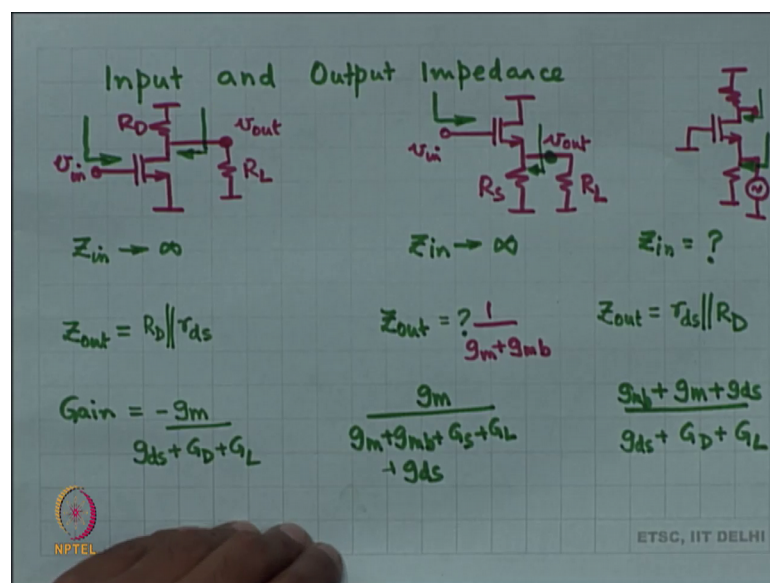 Input and Output Impedance
R_D
v_out
v_in
R_L
v_in
v_out
R_S
R_L
Z_in → ∞
Z_in → ∞
Z_in = ?
Z_out = R_D || r_ds
Z_out = ? 1 / (g_m + g_mb)
Z_out = r_ds || R_D
Gain = -g_m / (g_ds + G_D + G_L)
g_m / (g_m + g_mb + G_S + G_L + g_ds)
g_mb + g_m + g_ds / (g_ds + G_D + G_L)
NPTEL
ETSC, IIT DELHI